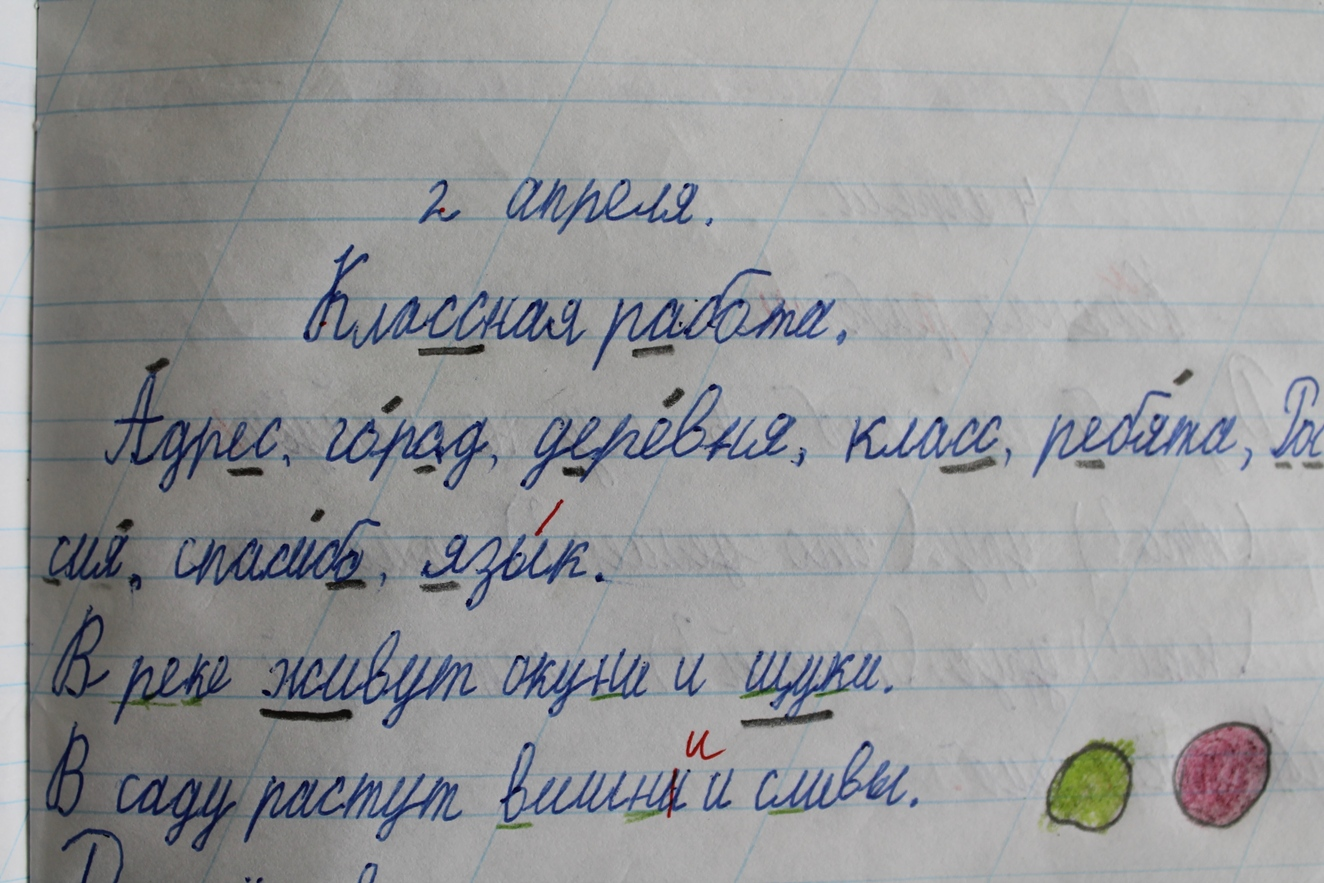 2 апреля.
Классная работа.
А́дрес, го́род, дере́вня, класс, ребя́та, Рос
сия́, спаси́бо, язы́к.
В реке живут окуни и щуки.
и
В саду растут вишни и сливы.